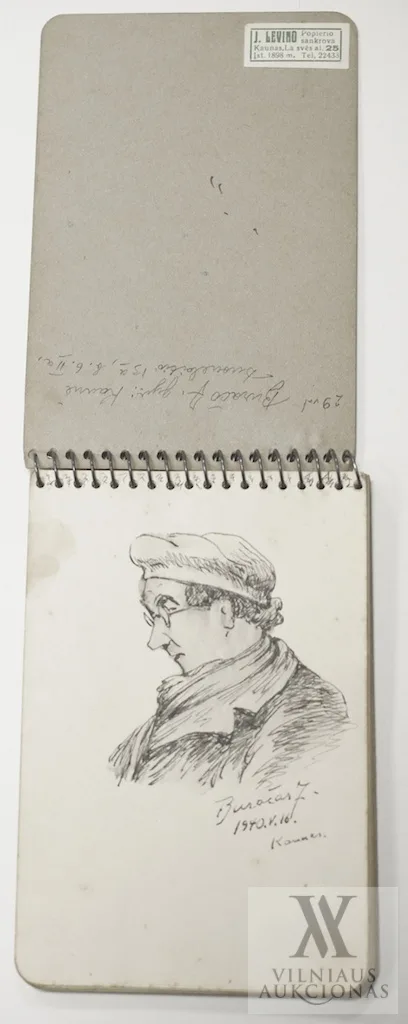 J. LEVINO Popierio
sankrova
Kaunas, La svės al. 25
Įst. 1898 m. Tel. 22433
29 vnl
Buračo J. gyv: Kaune
15a, b. 6. II a.
Buračas J.
1940.V.10.
Kaunas.
VILNIAUS
AUKCIONAS